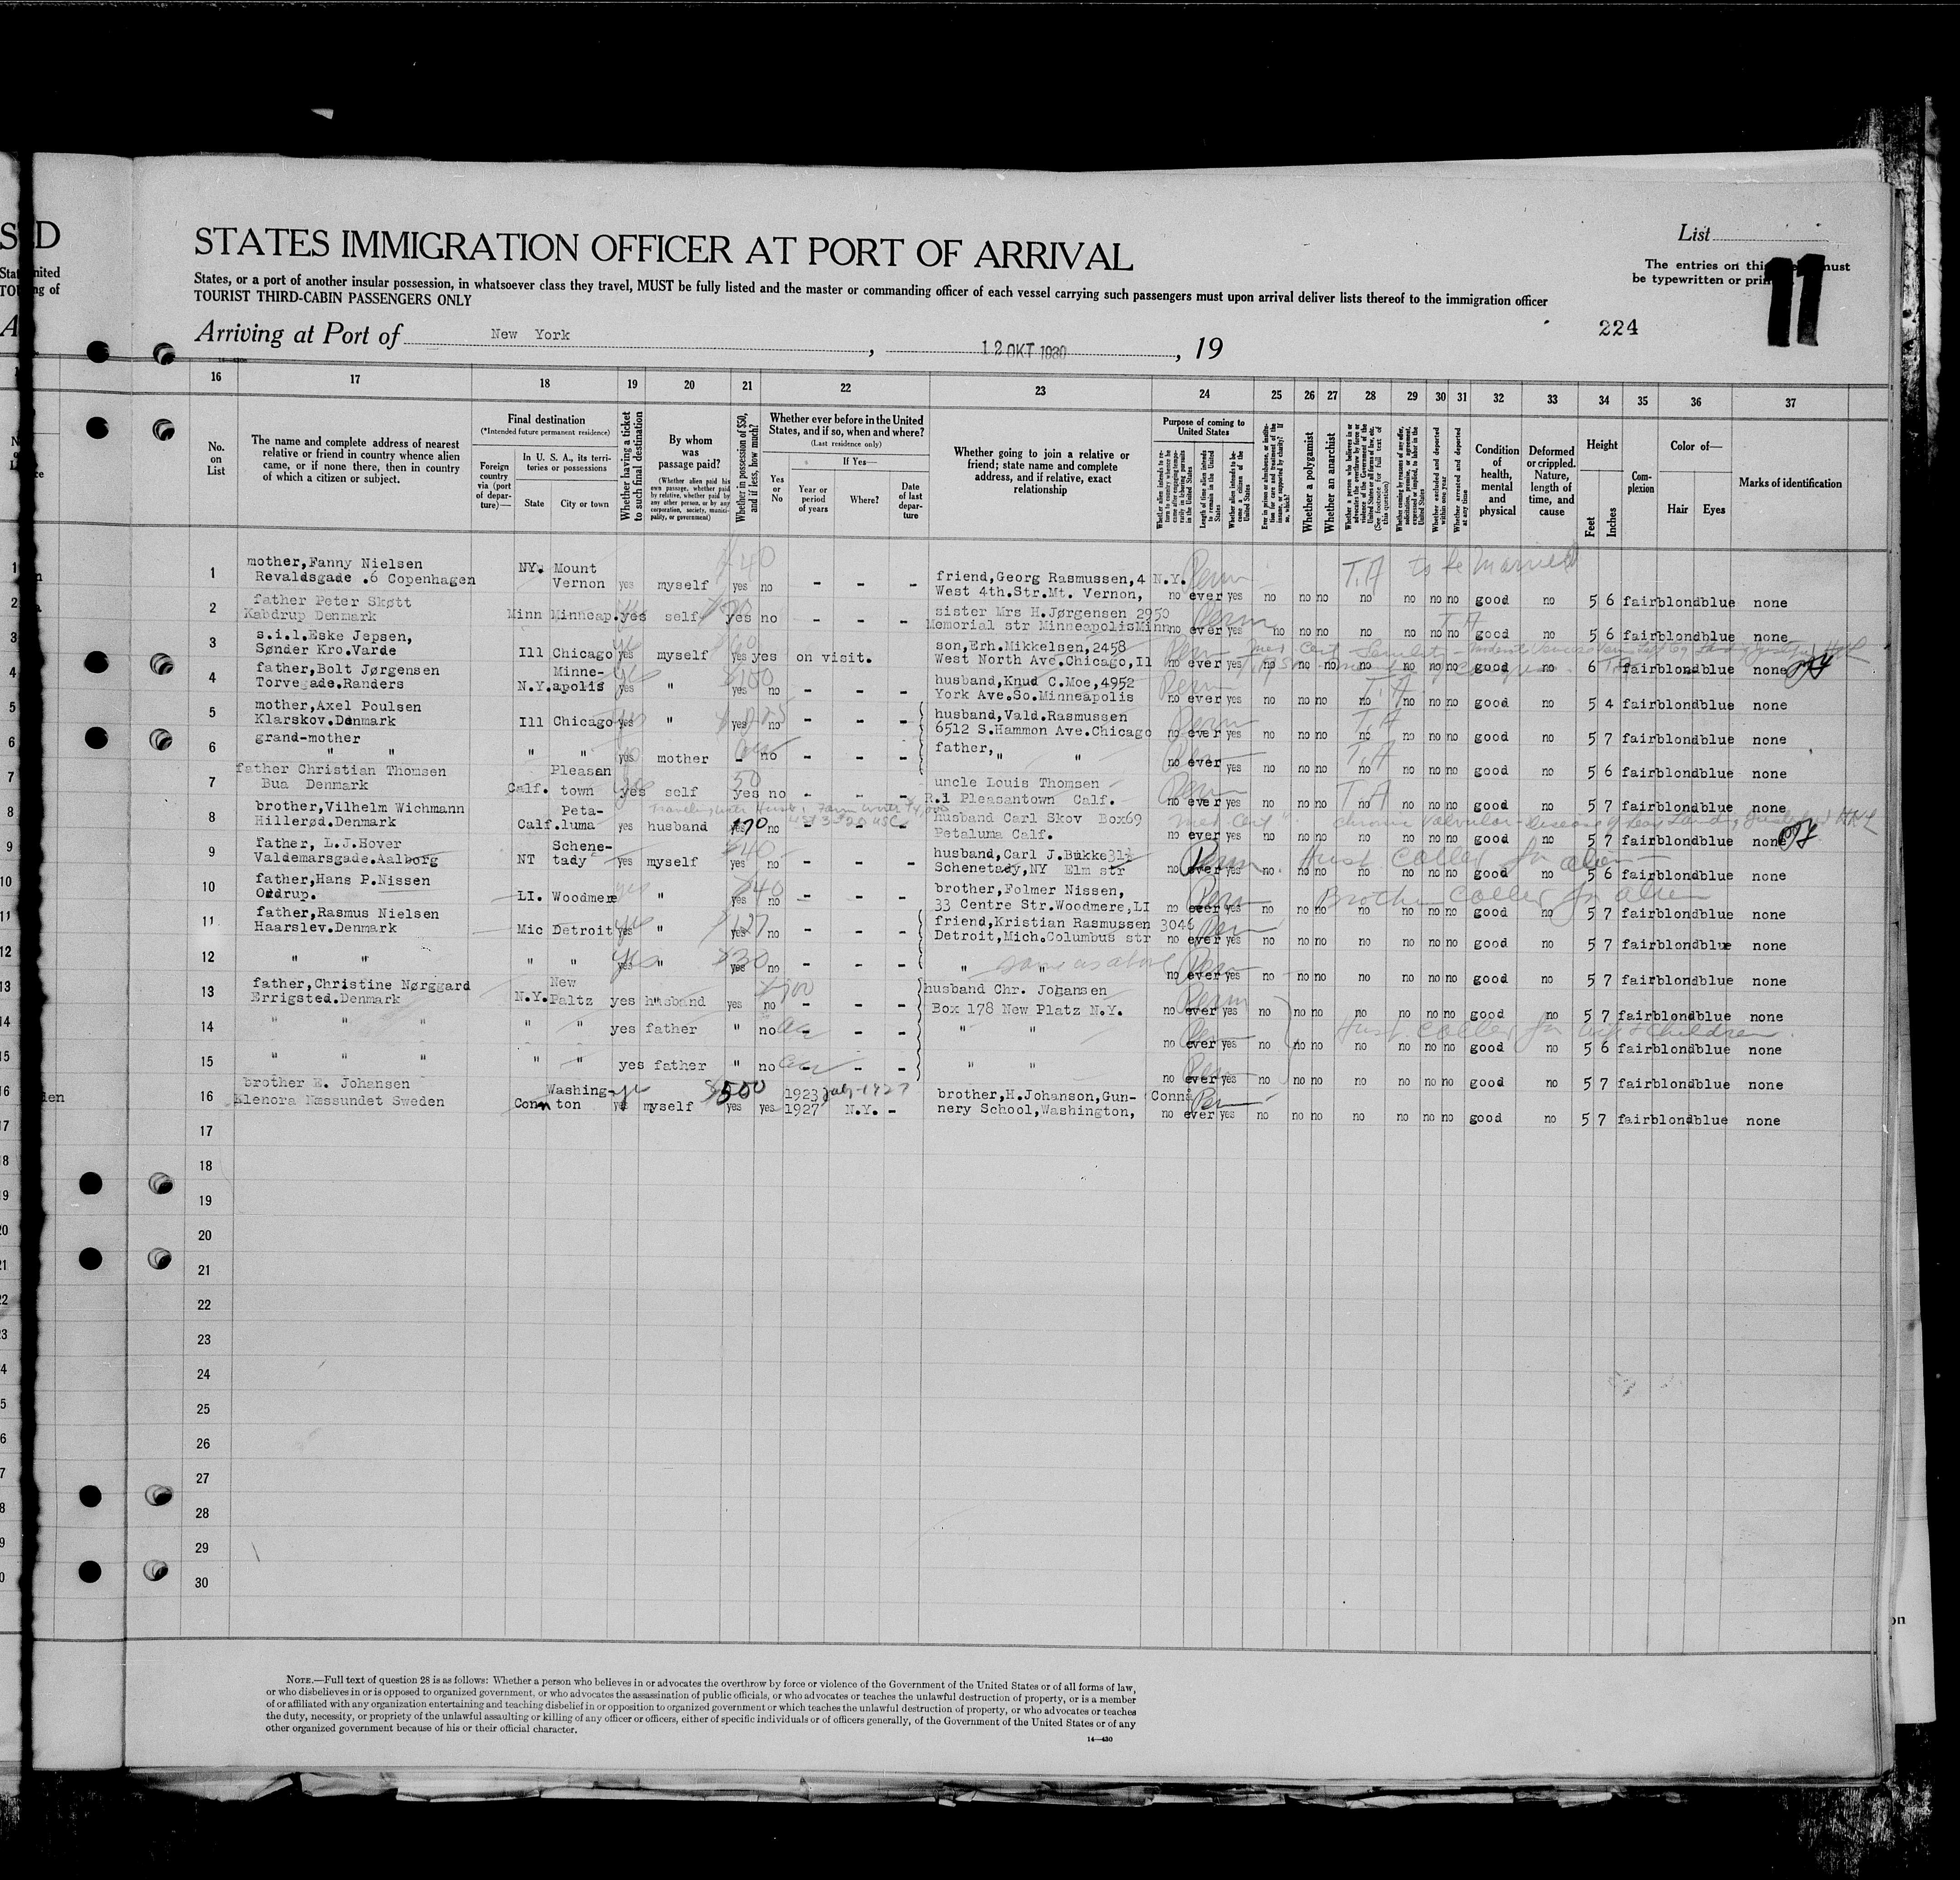 STATES IMMIGRATION OFFICER AT PORT OF ARRIVAL
States, or a port of another insular possession, in whatsoever class they travel, MUST be fully listed and the master or commanding officer of each vessel carrying such passengers must upon arrival deliver lists thereof to the immigration officer
TOURIST THIRD-CABIN PASSENGERS ONLY
List
The entries on this must
be typewritten or
11
224
Arriving at Port of New York , 12 OKT 1930 , 19
16 17 18 19 20 21 22 23 24 25 26 27 28 29 30 31 32 33 34 35 36 37
No. on List
The name and complete address of nearest relative or friend in country whence alien came, or if none there, then in country of which a citizen or subject.
Final destination
(*Intended future permanent residence)
Foreign country via (port of departure)—
In U. S. A., its territories or possessions
State City or town
Whether having a ticket to such final destination
By whom was passage paid?
(Whether alien paid his own passage, whether paid by relative, whether paid by any other person, or by any corporation, society, municipality, or government)
Whether in possession of $50, and if less, how much?
Whether ever before in the United States, and if so, when and where?
(Last residence only)
Yes or No
If Yes—
Year or period of years
Where?
Date of last departure
Whether going to join a relative or friend; state name and complete address, and if relative, exact relationship
Purpose of coming to United States
Whether a polygamist
Whether an anarchist
Whether excluded and deported within one year
Whether arrested and deported at any time
Condition of health, mental and physical
Deformed or crippled. Nature, length of time, and cause
Height
Feet Inches
Complexion
Color of—
Hair Eyes
Marks of identification
1 mother,Fanny Nielsen Revaldsgade .6 Copenhagen NY. Mount Vernon yes myself $40 yes no - - - friend,Georg Rasmussen,4 N.Y. West 4th.Str.Mt. Vernon, Perm T.A to be Married no ever yes no no no no no no no good no 5 6 fair blond blue none
2 father Peter Skøtt Kabdrup Denmark Minn Minneap. yes self yes no - - - sister Mrs H.Jørgensen 2950 Memorial str Minneapolis Minn Perm T A no ever yes no no no no no no no good no 5 6 fair blond blue none
3 s.i.l.Eske Jepsen, Sønder Kro.Varde Ill Chicago yes myself yes yes on visit. son,Erh.Mikkelsen,2458 West North Ave.Chicago,Il Perm Med Cert no ever yes no no no no no no no good no 6 fair blond blue none
4 father,Bolt Jørgensen Torvegade.Randers N.Y. Minneapolis yes " $100 yes no - - - husband,Knud C.Moe,4952 York Ave.So.Minneapolis Perm T.A no ever yes no no no no no no no good no 5 4 fair blond blue none
5 mother,Axel Poulsen Klarskov.Denmark Ill Chicago yes " yes no - - - husband,Vald.Rasmussen 6512 S.Hammon Ave.Chicago Perm T.A no ever yes no no no no no no no good no 5 7 fair blond blue none
6 grand-mother " " " " yes mother - no - - - father, " " Perm T.A no ever yes no no no no no no no good no 5 6 fair blond blue none
7 father Christian Thomsen Bua Denmark Calf. Pleasantown yes self 50 yes no - - - uncle Louis Thomsen R.1 Pleasantown Calf. Perm T.A no ever yes no no no no no no no good no 5 7 fair blond blue none
8 brother,Vilhelm Wichmann Hillerød.Denmark Calf. Petaluma yes husband yes 170 no - - - husband Carl Skov Box69 Petaluma Calf. Med Cert chronic Valvular Disease no ever yes no no no no no no no good no 5 7 fair blond blue none
9 father, L.J.Hover Valdemarsgade.Aalborg NT Schenetady yes myself $40 yes no - - - husband,Carl J.Bukke31½ Schenetady,NY Elm str Perm Husb. called for alien no ever yes no no no no no no no good no 5 6 fair blond blue none
10 father,Hans P.Nissen Oddrup. LI. Woodmere yes " $40 yes no - - - brother,Folmer Nissen, 33 Centre Str.Woodmere,LI Perm Brother called for alien no ever yes no no no no no no no good no 5 7 fair blond blue none
11 father,Rasmus Nielsen Haarslev.Denmark Mic Detroit yes " $127 yes no - - - friend,Kristian Rasmussen 3046 Detroit,Mich.Columbus str Perm no ever yes no no no no no no no good no 5 7 fair blond blue none
12 " " " " yes " $30 yes no - - - " same as above " Perm no ever yes no no no no no no no good no 5 7 fair blond blue none
13 father,Christine Nørggard Errigsted.Denmark N.Y. New Paltz yes husband yes no - - - husband Chr. Johansen Box 178 New Platz N.Y. Perm no ever yes no no no no no no no good no 5 7 fair blond blue none
14 " " " " " yes father " no - - - " " Perm Husb. called for wife & children no ever yes no no no no no no no good no 5 6 fair blond blue none
15 " " " " " yes father " no - - - " " Perm no ever yes no no no no no no no good no 5 7 fair blond blue none
16 brother E. Johansen Elenora Næssundet Sweden Conn Washington yes myself $500 yes yes 1923 1927 July-1927 N.Y. - brother,H.Johanson,Gunnery School,Washington, Conn. Perm no ever yes no no no no no no no good no 5 7 fair blond blue none
17
18
19
20
21
22
23
24
25
26
27
28
29
30
NOTE.—Full text of question 28 is as follows: Whether a person who believes in or advocates the overthrow by force or violence of the Government of the United States or of all forms of law,
or who disbelieves in or is opposed to organized government, or who advocates the assassination of public officials, or who advocates or teaches the unlawful destruction of property, or is a member
of or affiliated with any organization entertaining and teaching disbelief in or opposition to organized government or which teaches the unlawful destruction of property, or who advocates or teaches
the duty, necessity, or propriety of the unlawful assaulting or killing of any officer or officers, either of specific individuals or of officers generally, of the Government of the United States or of any
other organized government because of his or their official character.
14—430